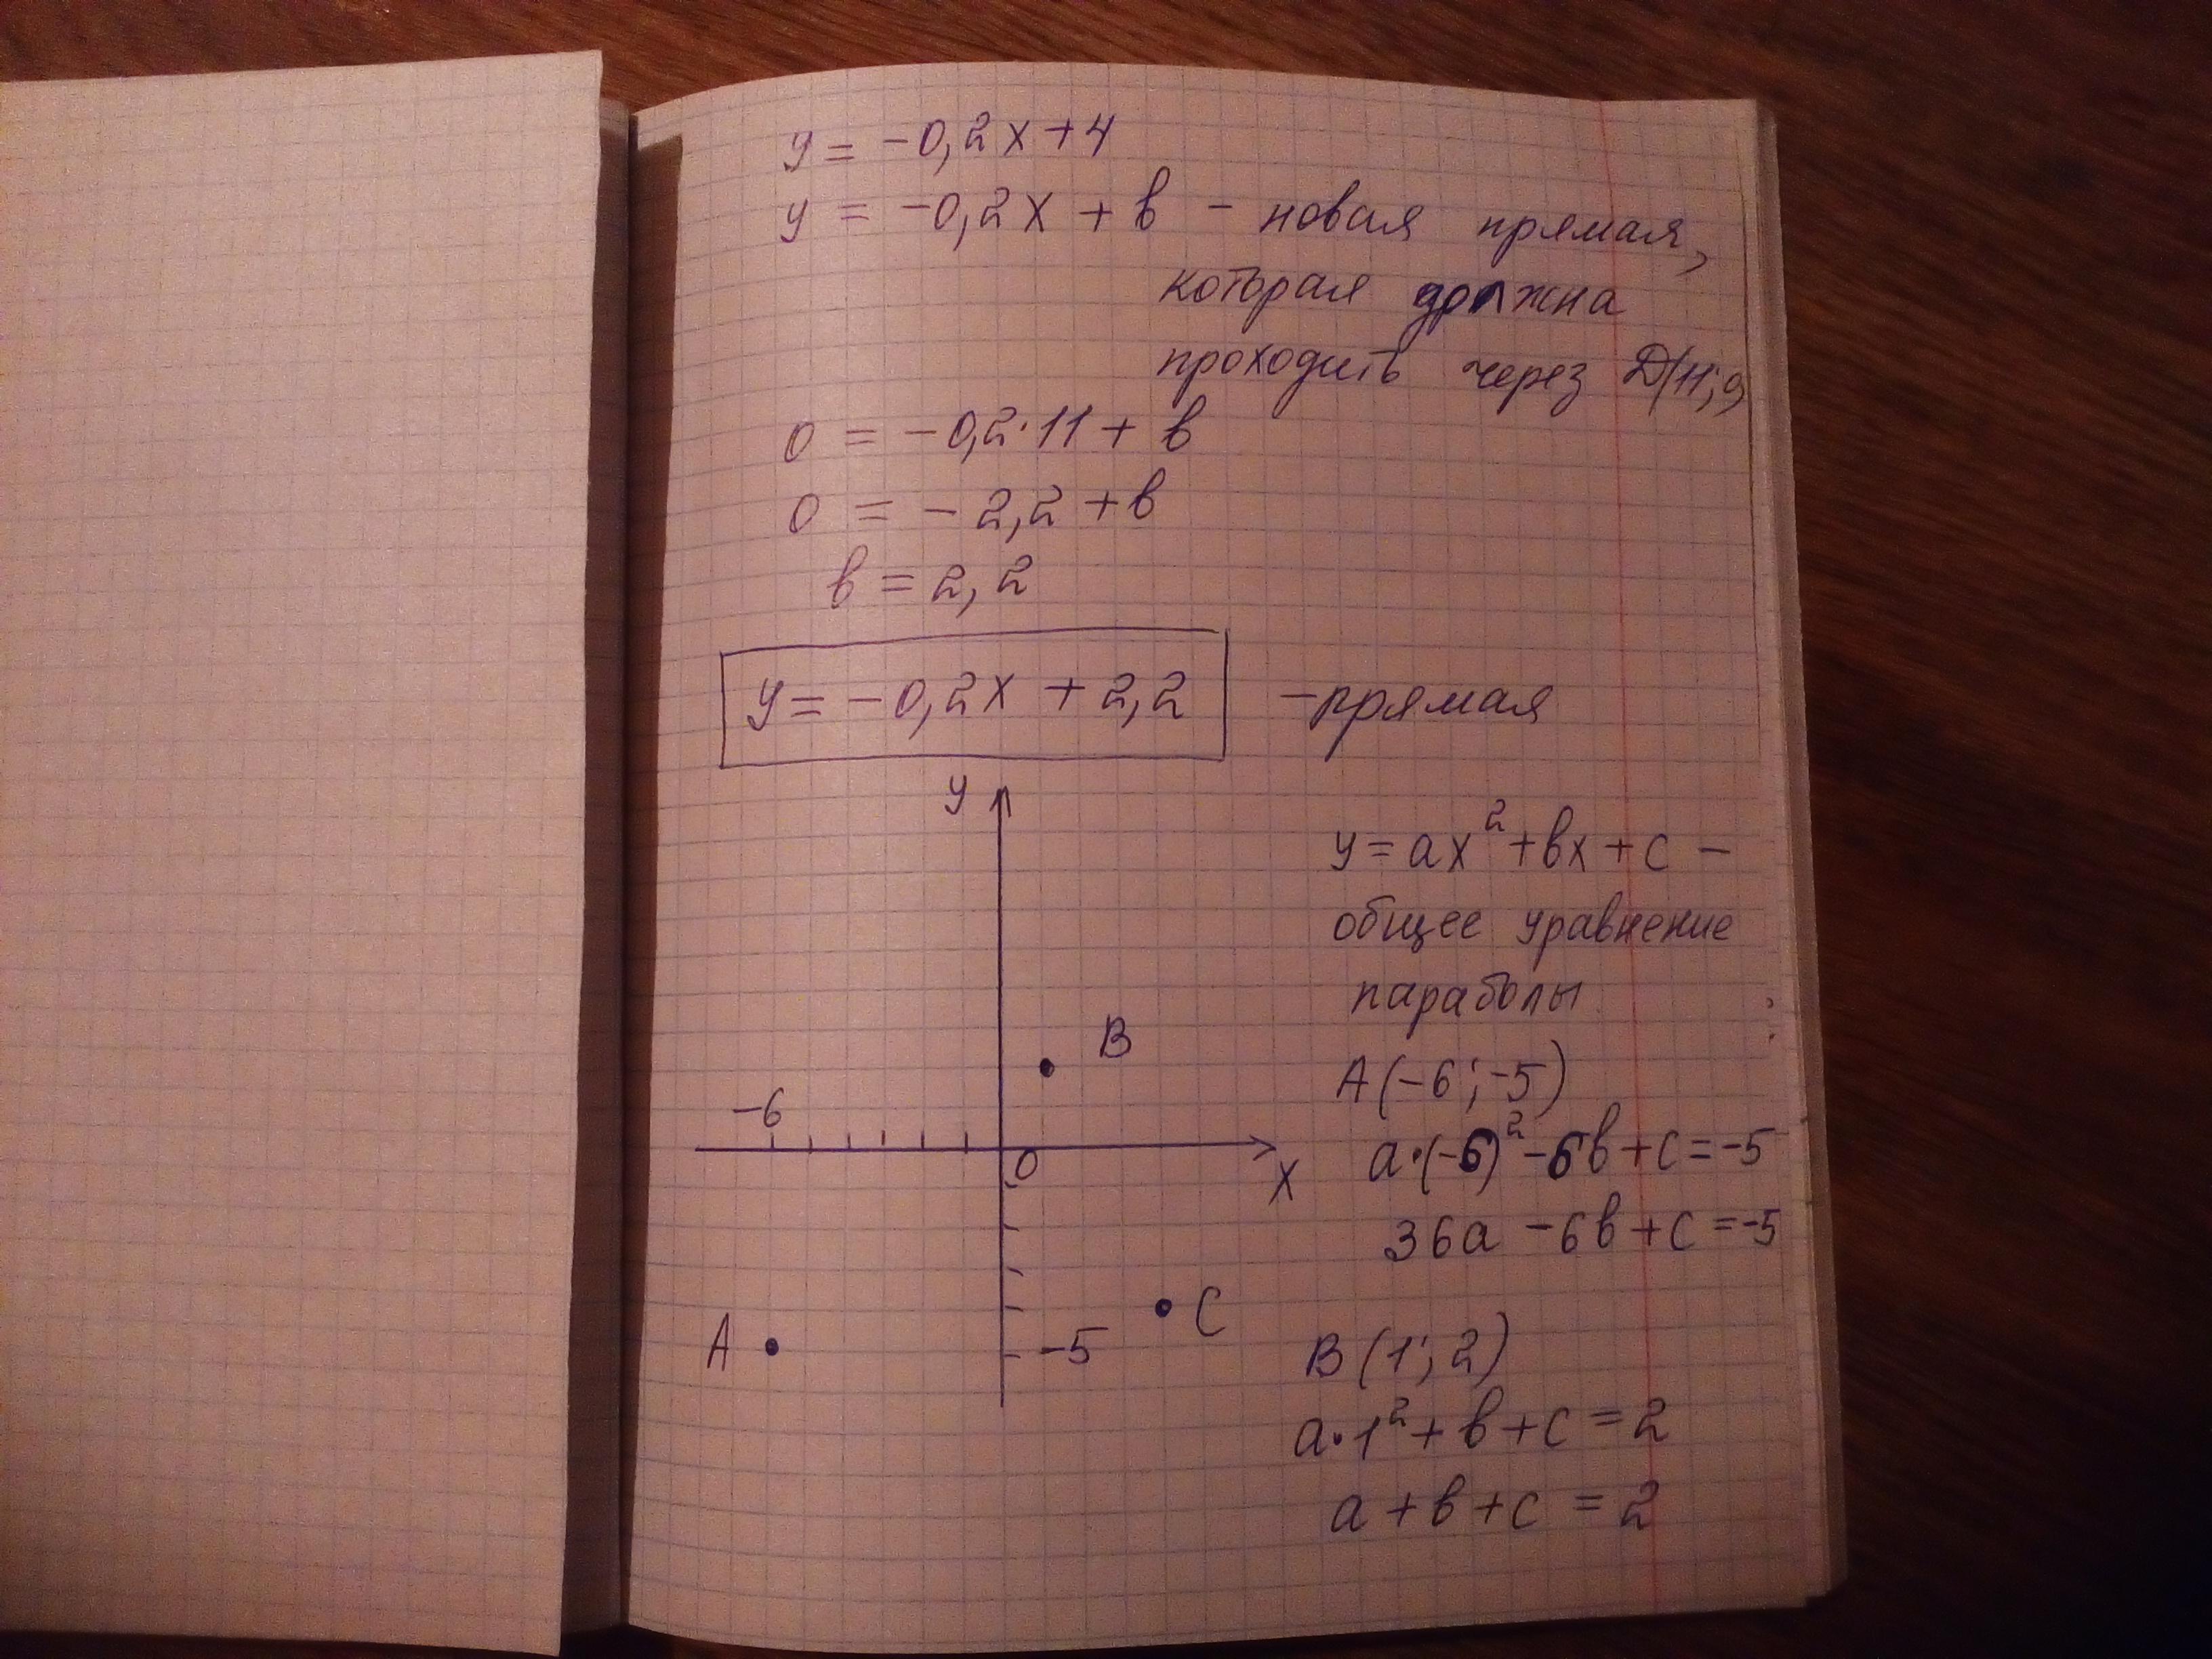 y = -0,2x+4
y = -0,2x + в - новая прямая,
которая должна
проходить через Д(11;0)
0 = -0,2·11 + в
0 = -2,2 + в
в = 2,2
y = -0,2x + 2,2 - прямая
y
y = ax²+вx+c -
общее уравнение
параболы
B
A(-6;-5)
-6
0
x
a·(-6)²-6в+c=-5
36a-6в+c=-5
C
A
-5
B(1;2)
a·1²+в+c=2
a+в+c=2